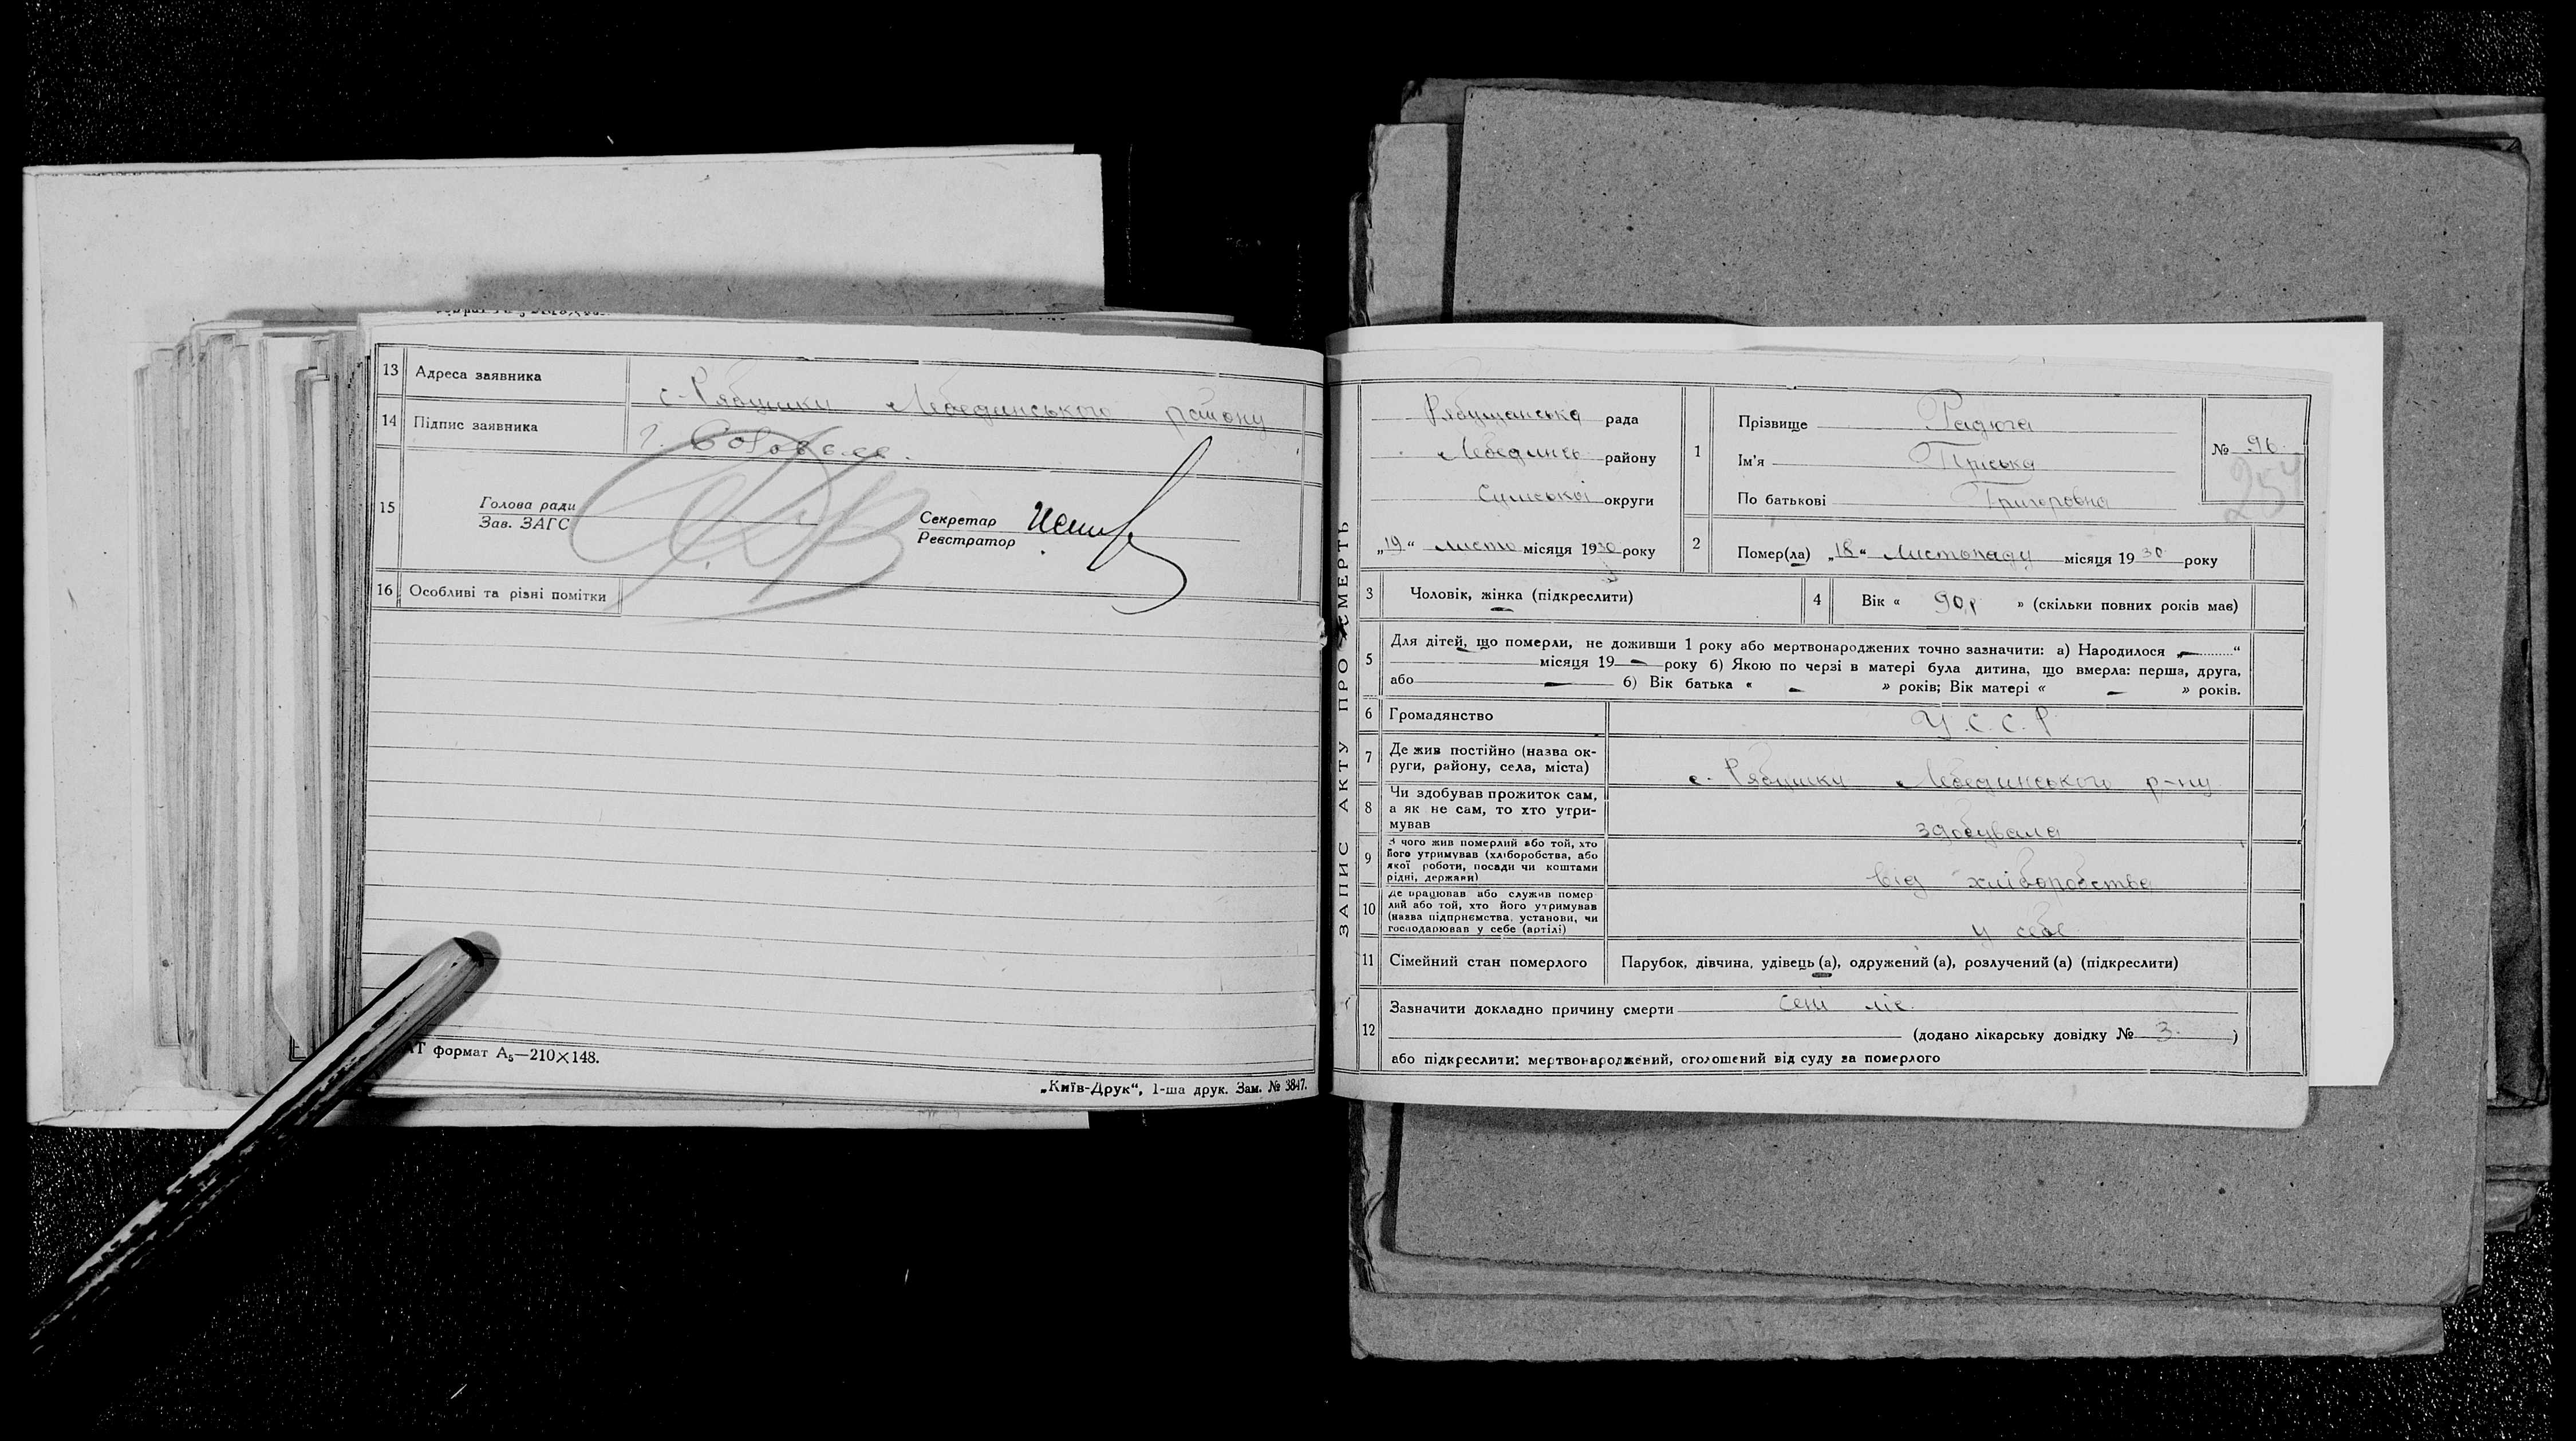 13 Адреса заявника с. Рябушки Лебединського району
14 Підпис заявника
15 Голова ради
Зав. ЗАГС
Секретар
Реєстратор
16 Особливі та різні помітки
формат А₅—210×148.
„Київ-Друк“, 1-ша друк. Зам. № 3847.
ЗАПИС АКТУ ПРО СМЕРТЬ
Рябушанська рада
Лебединсь району
Сумської округи
„19“ листо місяця 1930 року
1 Прізвище Радюга
Ім'я Пріська
По батькові Григоровна
№ 96
2 Помер(ла) „18“ Листопаду місяця 1930 року
3 Чоловік, жінка (підкреслити)
4 Вік « 90 р » (скільки повних років має)
5 Для дітей, що померли, не доживши 1 року або мертвонароджених точно зазначити: а) Народилося „ — “
місяця 19 — року б) Якою по черзі в матері була дитина, що вмерла: перша, друга,
або — б) Вік батька « — » років; Вік матері « — » років.
6 Громадянство У.С.С.Р
7 Де жив постійно (назва ок-
руги, району, села, міста) с. Рябушки Лебединського р-ну
8 Чи здобував прожиток сам,
а як не сам, то хто утри-
мував здобувала
9 З чого жив померлий або той, хто
його утримував (хліборобства, або
якої роботи, посади чи коштами
рідні, держави) від хліборобства
10 Де працював або служив помер
лий або той, хто його утримував
(назва підприємства, установи, чи
господарював у себе (артілі) у себе
11 Сімейний стан померлого Парубок, дівчина, удівець (а), одружений (а), розлучений (а) (підкреслити)
12 Зазначити докладно причину смерти
(додано лікарську довідку № 3. )
або підкреслити: мертвонароджений, оголошений від суду за померлого